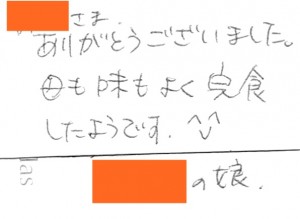 さま.
ありがとうございました。
母も味もよく完食
したようです. ^ ^
の娘.
las